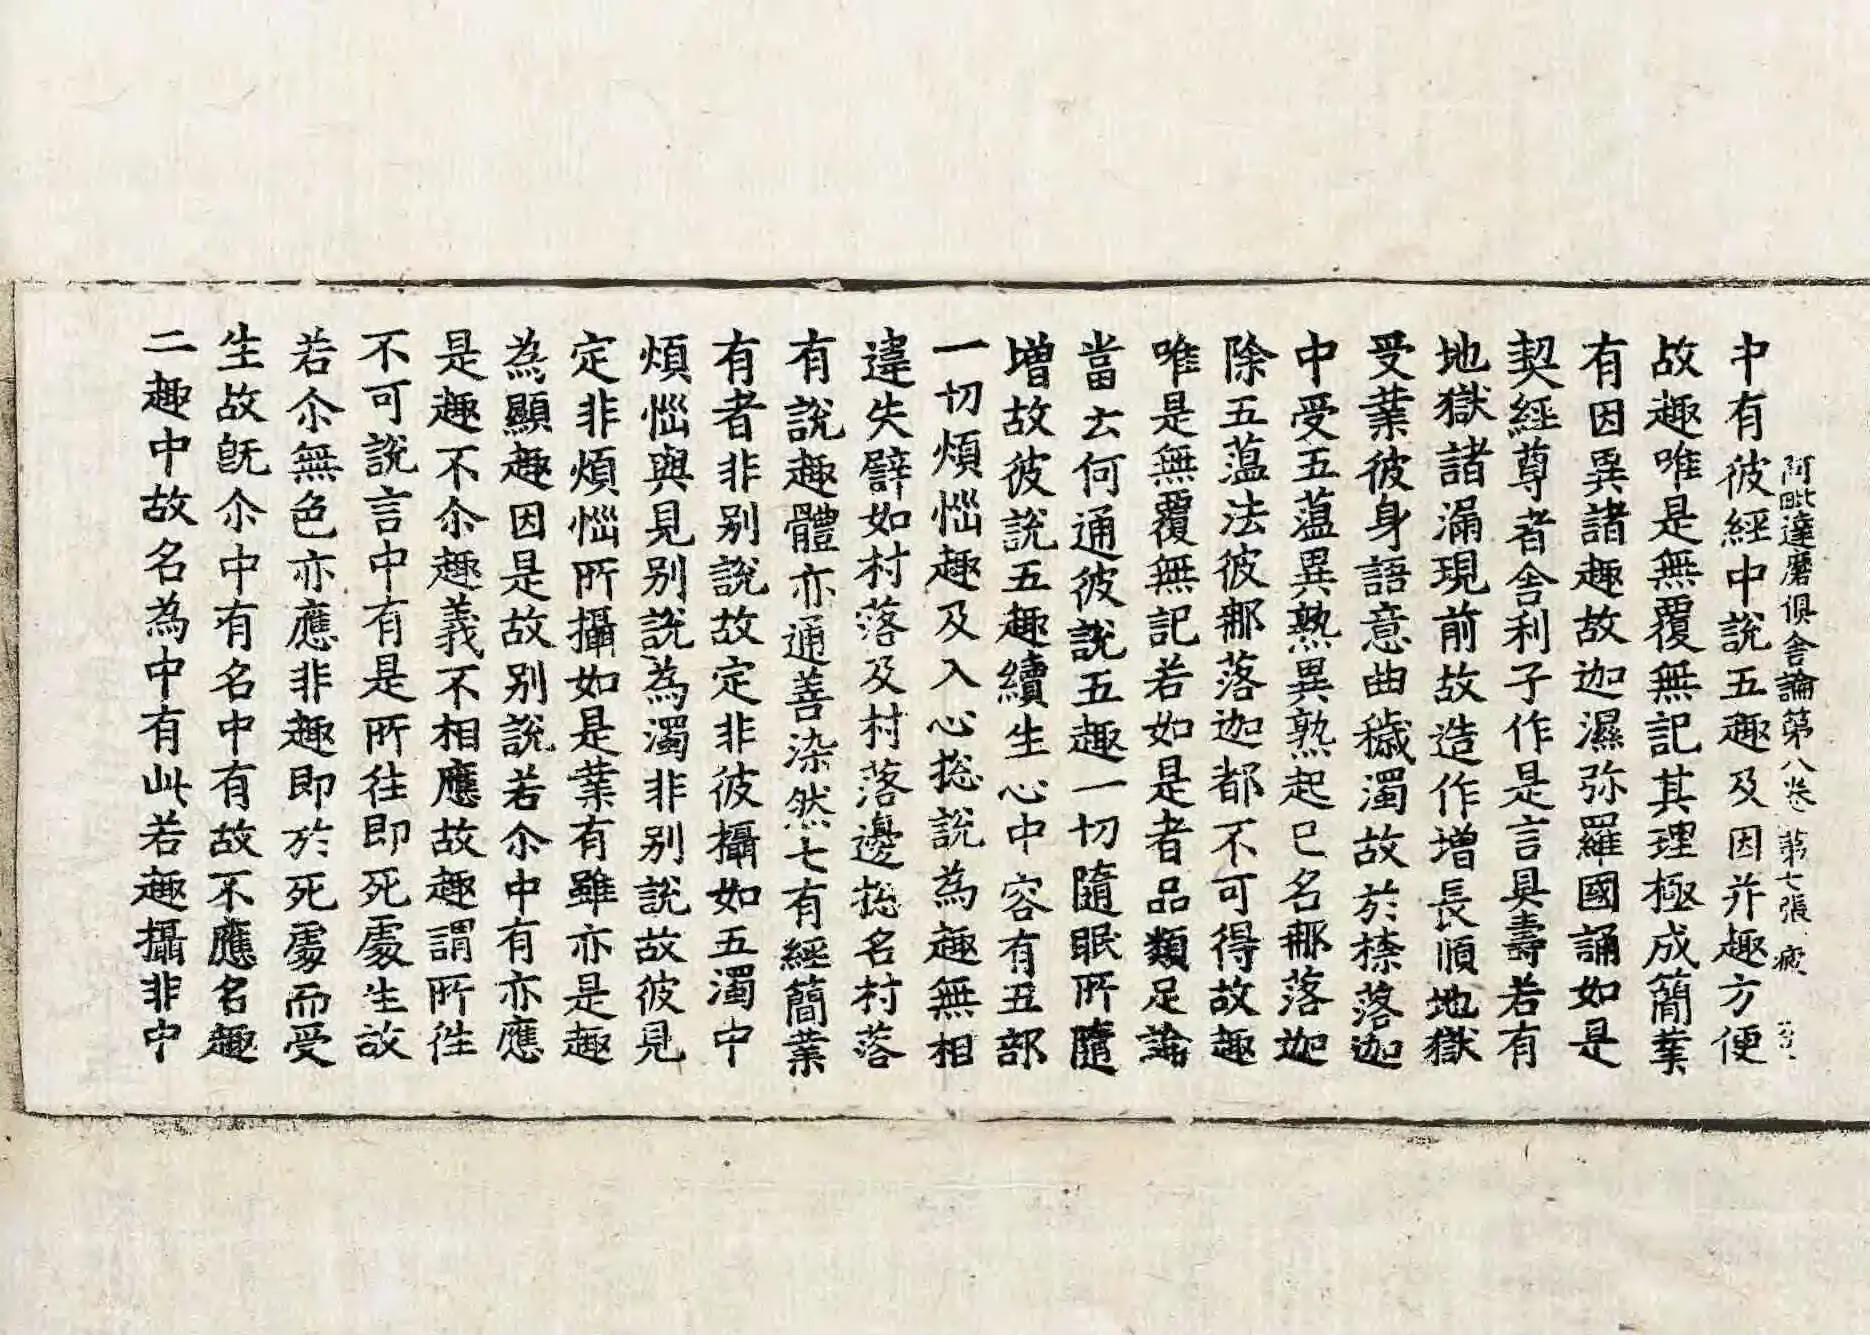 阿毗達磨俱舍論第八卷 第七張 疲
中有彼經中說五趣及因并趣方便
故趣唯是無覆無記其理極成簡業
有因異諸趣故迦濕弥羅國誦如是
契經尊者舍利子作是言具壽若有
地獄諸漏現前故造作增長順地獄
受業彼身語意曲穢濁故於㮈落迦
中受五蘊異熟異熟起已名那落迦
除五蘊法彼那落迦都不可得故趣
唯是無覆無記若如是者品類足論
當云何通彼說五趣一切隨眠所隨
增故彼說五趣續生心中容有五部
一切煩惱趣及入心捴說為趣無相
違失譬如村落及村落邊捴名村落
有說趣體亦通善染然七有經簡業
有者非別說故定非彼攝如五濁中
煩惱與見別說為濁非別說故彼見
定非煩惱所攝如是業有雖亦是趣
為顯趣因是故別說若尒中有亦應
是趣不尒趣義不相應故趣謂所往
不可說言中有是所往即死處生故
若尒無色亦應非趣即於死處而受
生故旣尒中有名中有故不應名趣
二趣中故名為中有此若趣攝非中